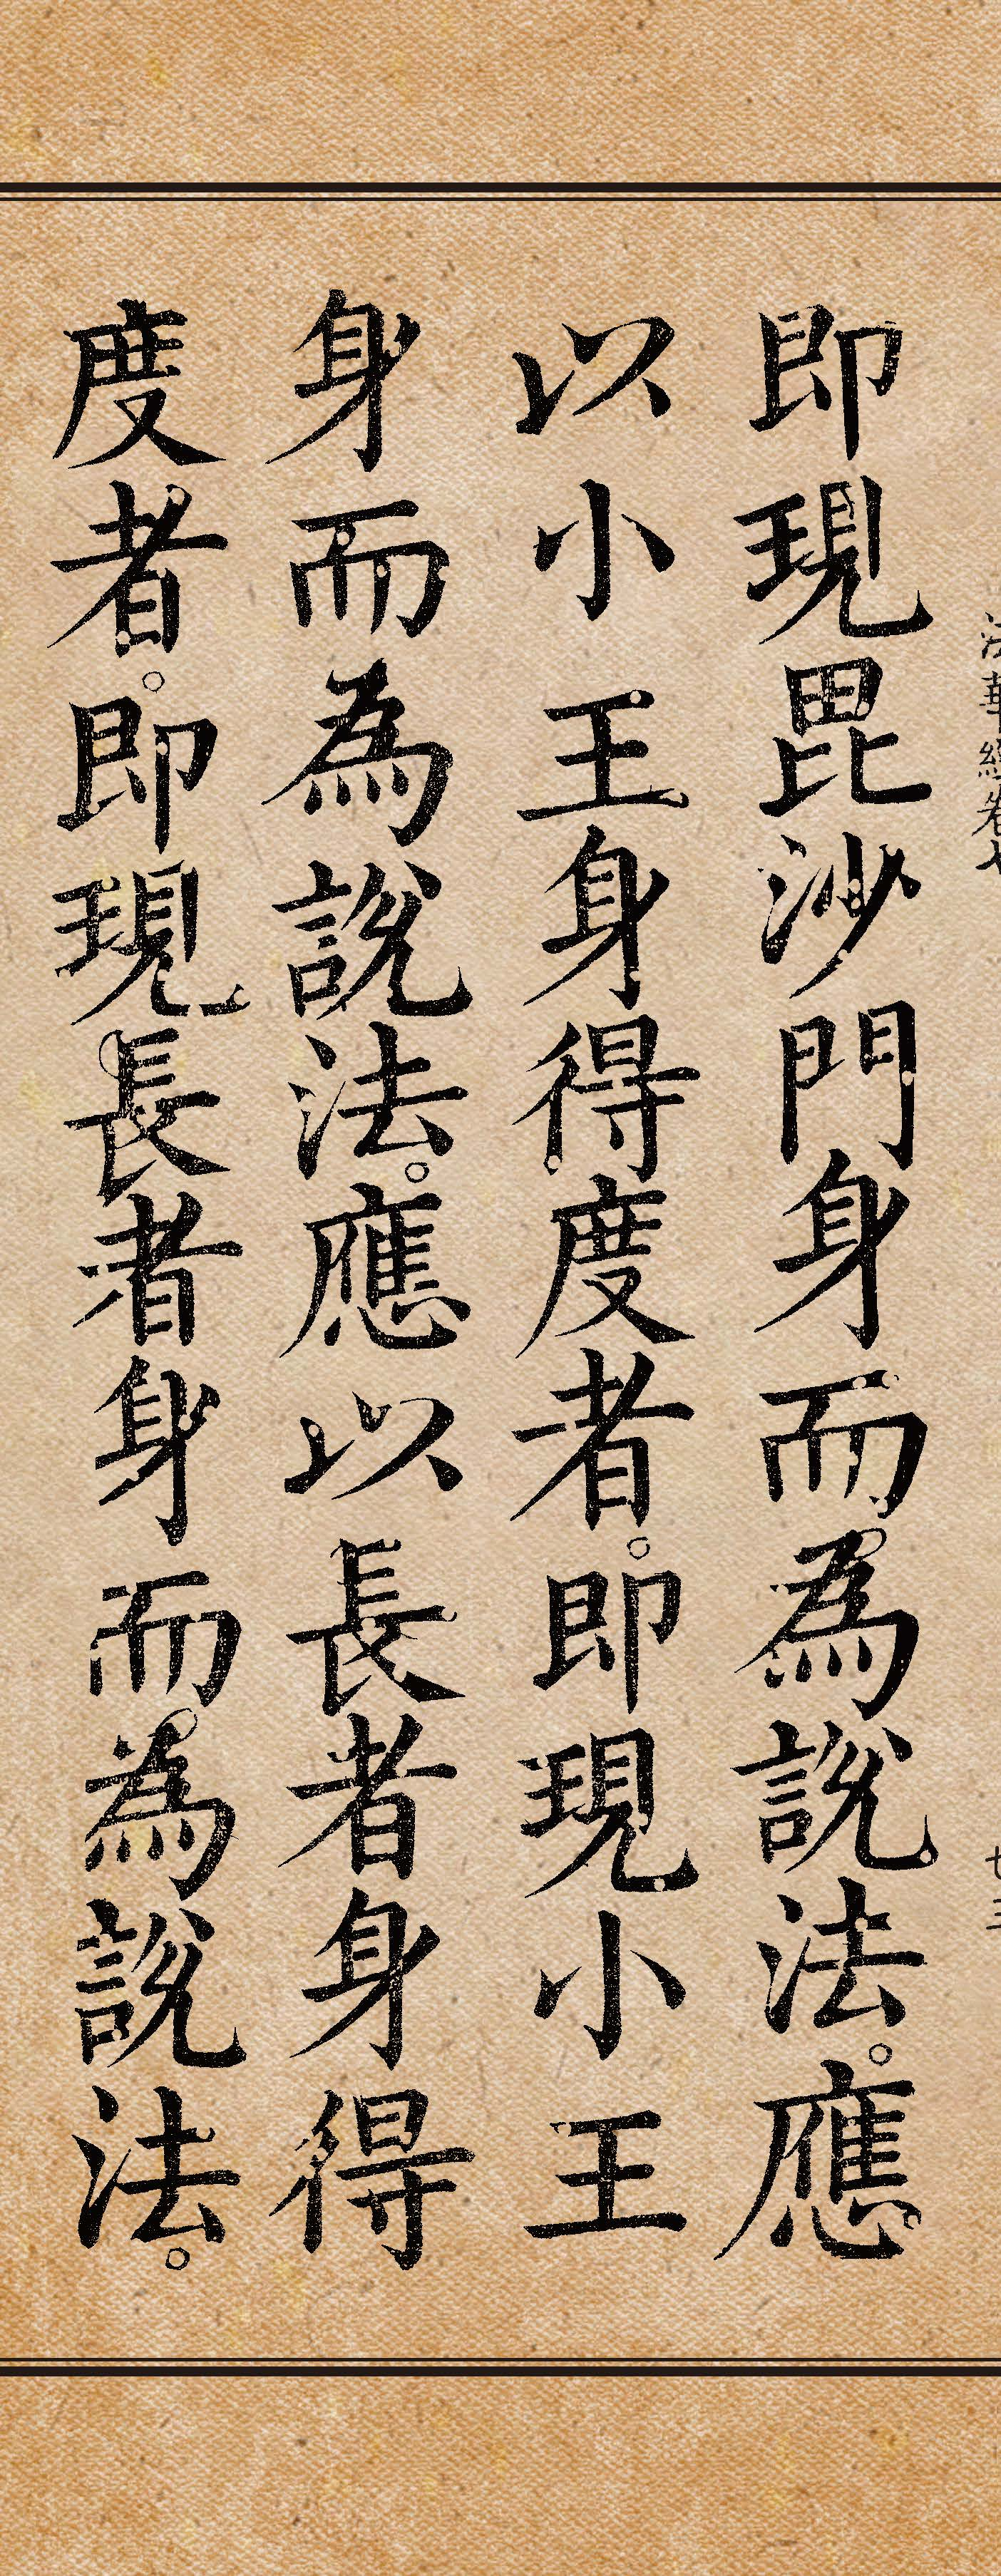 法華經卷七
廿三
即現毘沙門身而為說法。應
以小王身得度者。即現小王
身而為說法。應以長者身得
度者。即現長者身而為說法。